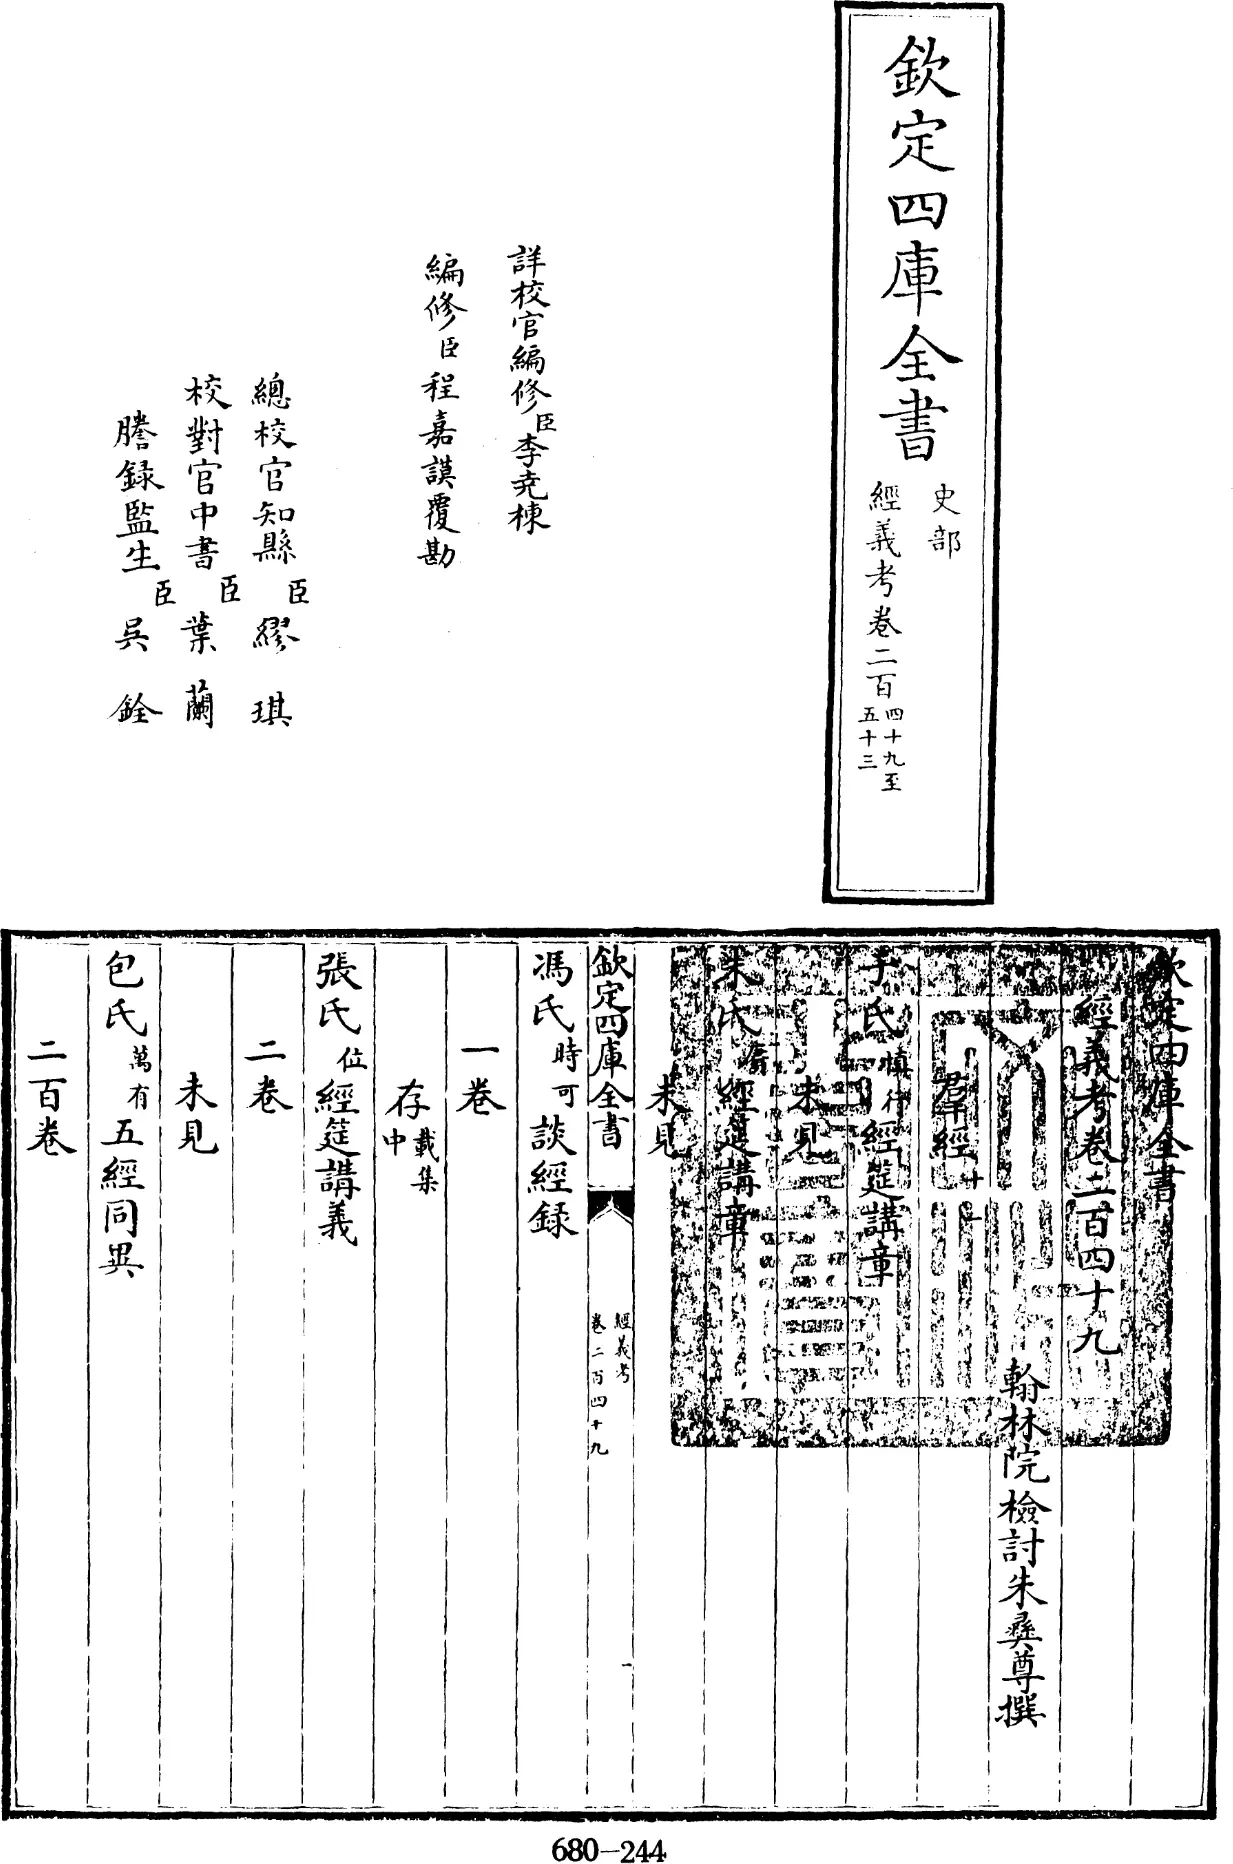 欽定四庫全書
史部
經義考卷二百四十九至
五十三
詳校官編修臣李尭棟
編修臣程嘉謨覆勘
總校官知縣臣繆琪
校對官中書臣葉蘭
謄録監生臣吳銓
欽定四庫全書
經義考卷二百四十九
翰林院檢討朱彝尊撰
羣經十一
于氏慎行經筵講章
未見
朱氏賡經筵講章
未見
欽定四庫全書
經義考
卷二百四十九
一
馮氏時可談經録
一卷
存載集中
張氏位經筵講義
二卷
未見
包氏萬有五經同異
二百卷
680-244